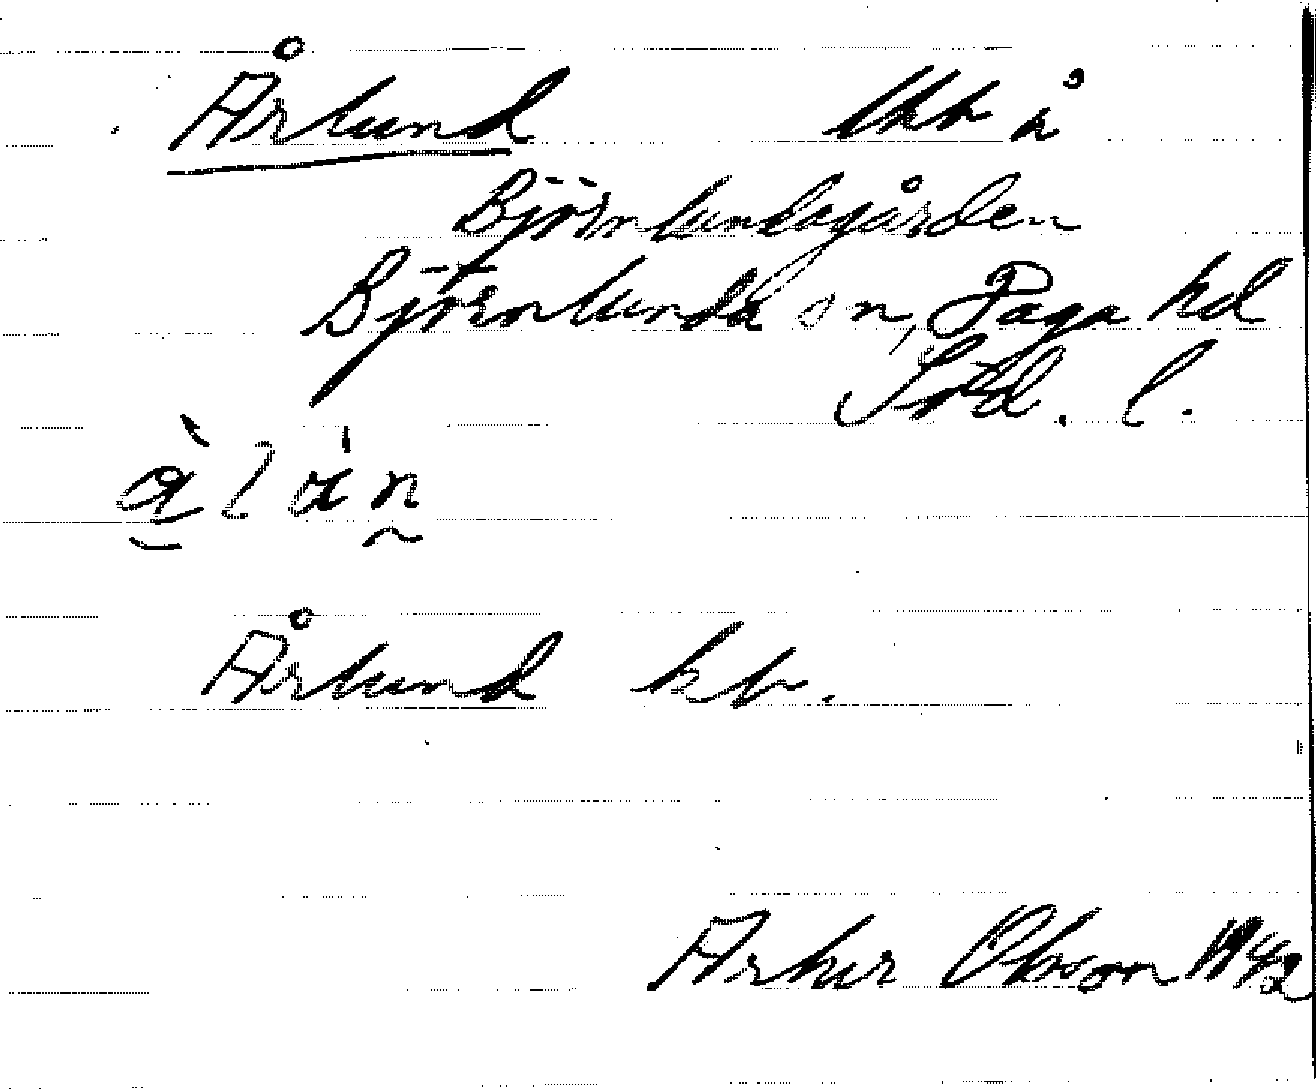 Årlund lkt å
Björnlundagården
Björnlunda sn, Daga hd
Srd. l.
Årlund kt.
Artur Olsson 1942